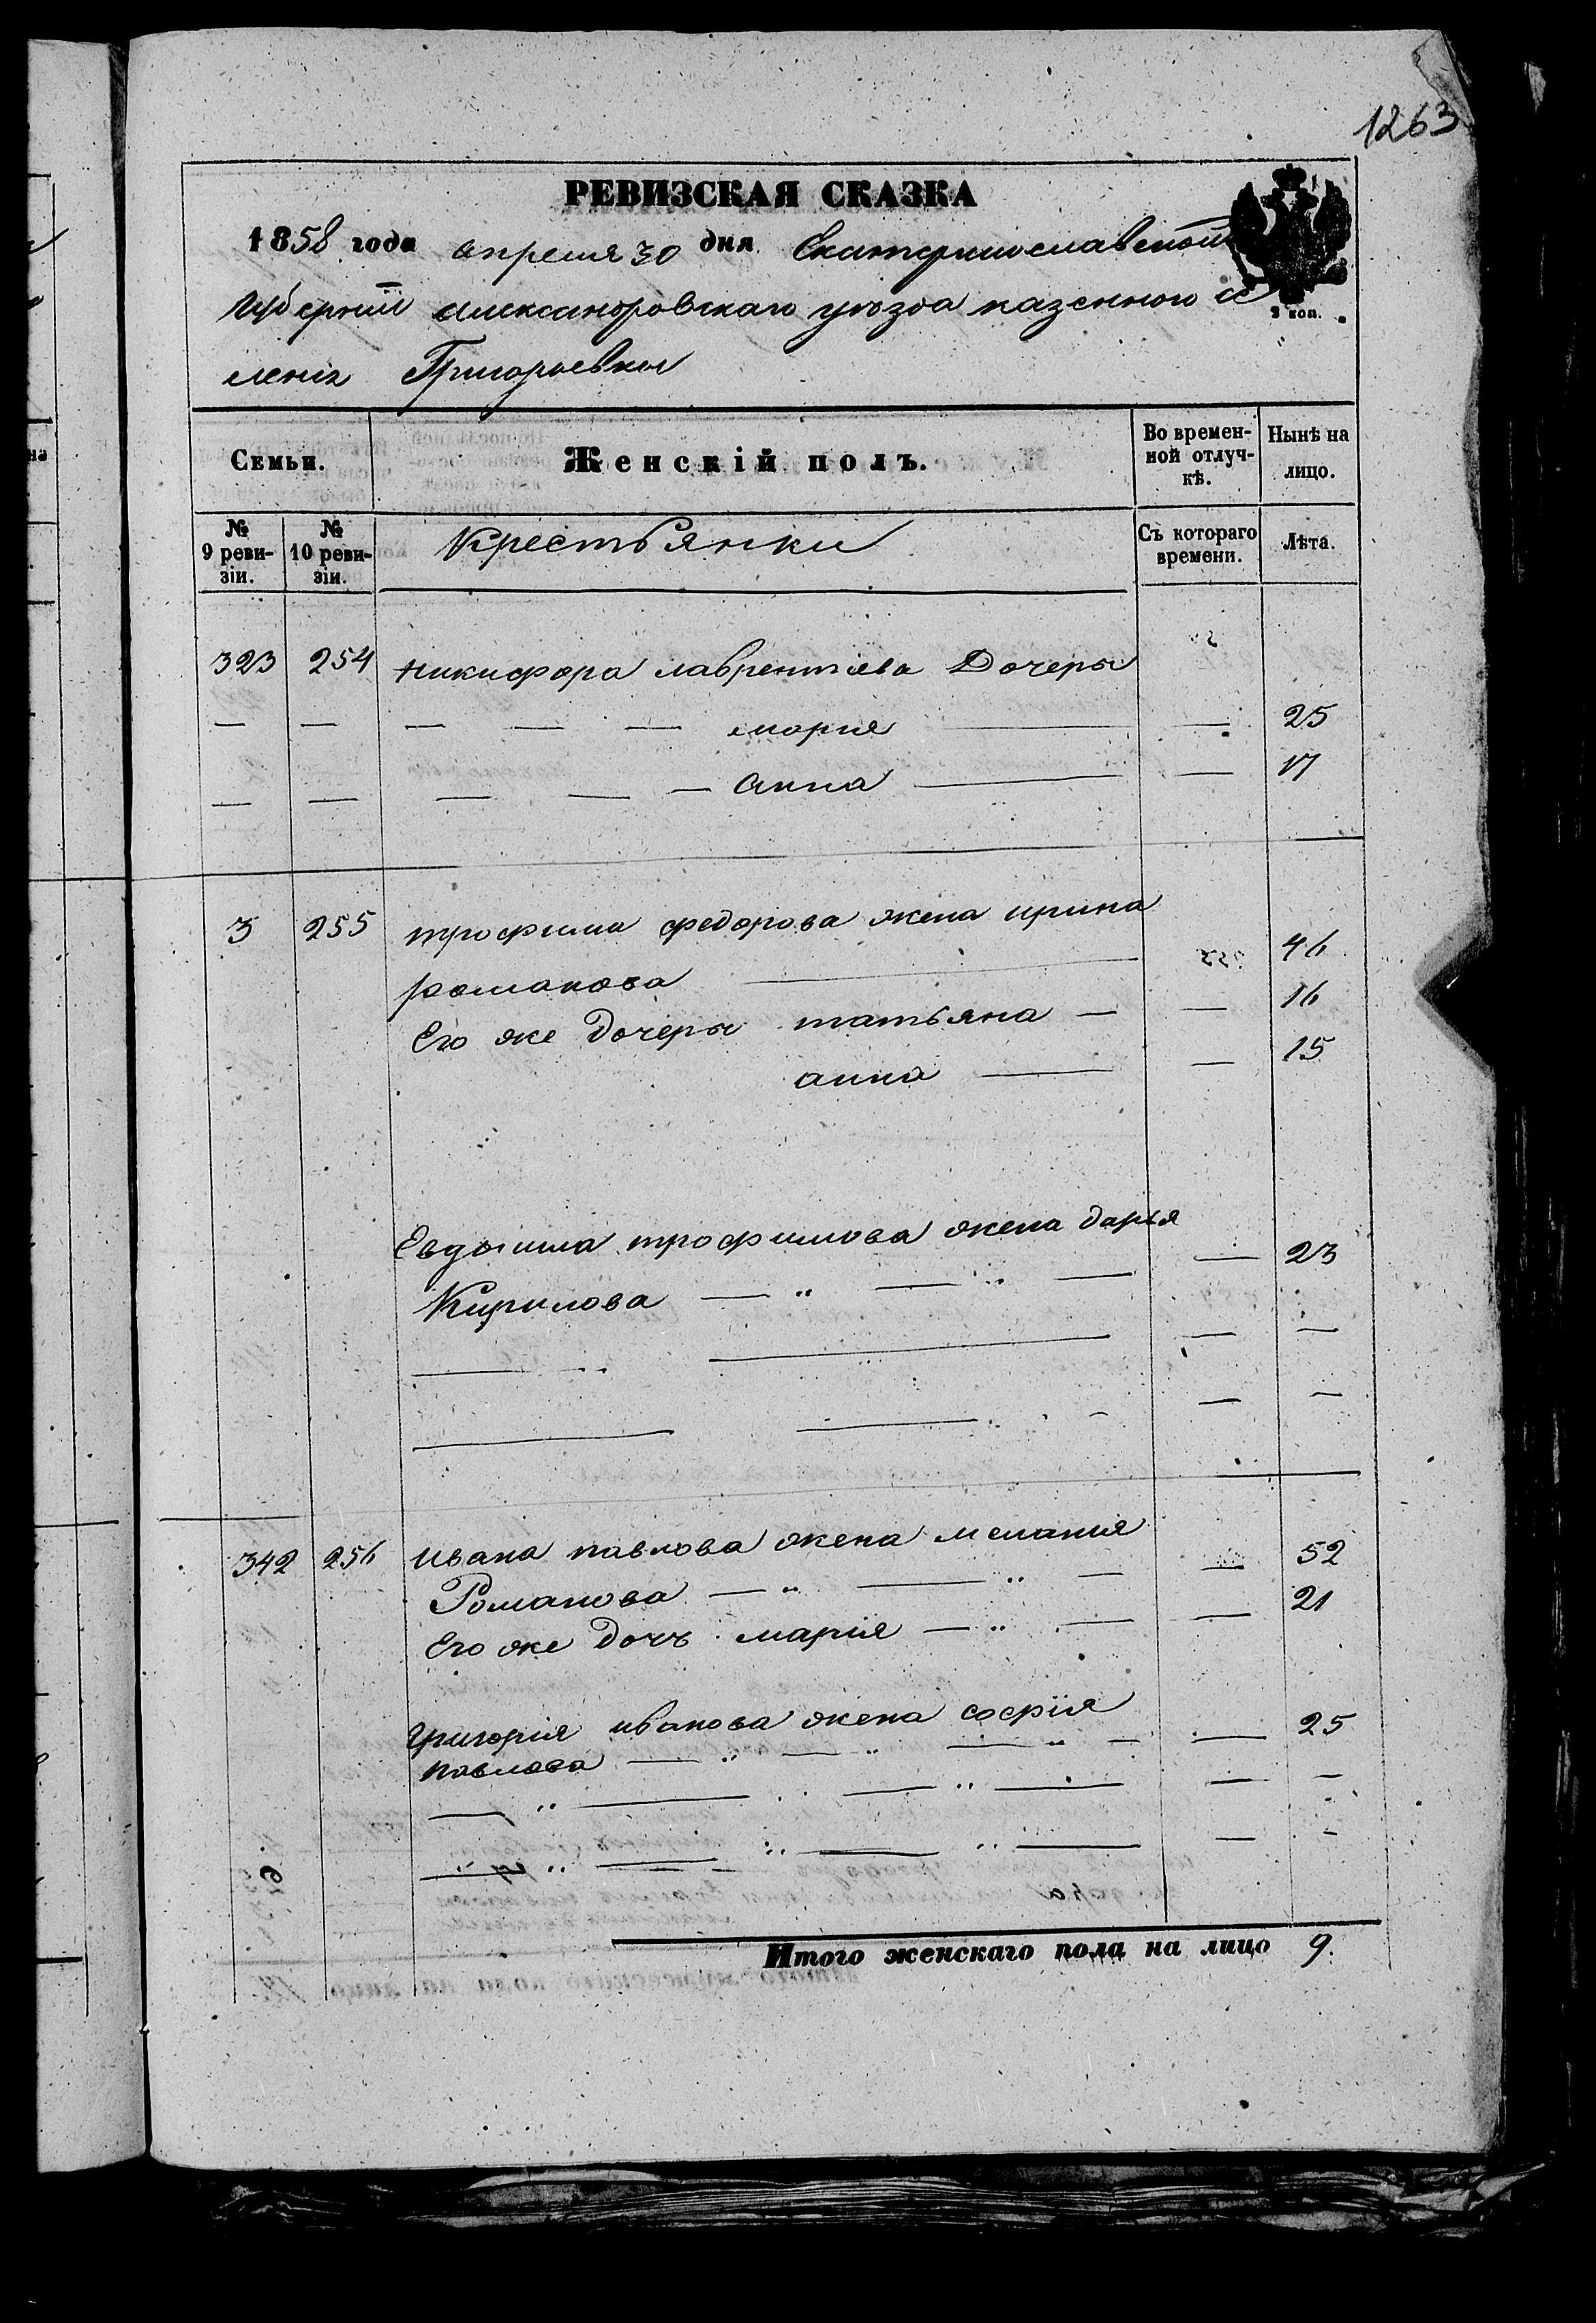 1263
РЕВИЗСКАЯ СКАЗКА
1858 года апреля 30 дня Екатеринославской
Губернии александровскаго уѣзда казенного се
2 коп.
ления Григорьевки
Семьи.
Женскій полъ.
Во времен-
ной отлуч-
кѣ.
Нынѣ на
лицо.
№
9 реви-
зіи.
№
10 реви-
зіи.
Крестьянки
Съ котораго
времени.
Лѣта.
323 254 никифора лаврентьева Дочеры
— — — — — мария — — 25
— — — — — Анна — — 17
3 255 трофима федорова жена ирина
романова — 46
Его же Дочеры татьяна — — 16
анна — — 15
Евдокима трофимова жена дарья
Кирилова — „ — „ — — 23
342 256 Ивана павлова жена мелания
Романова — „ — „ — — 52
Его же дочь марія — „ — — 21
Григорія иванова жена софія
павлова — „ — „ — „ — — 25
Итого женскаго пола на лицо 9.